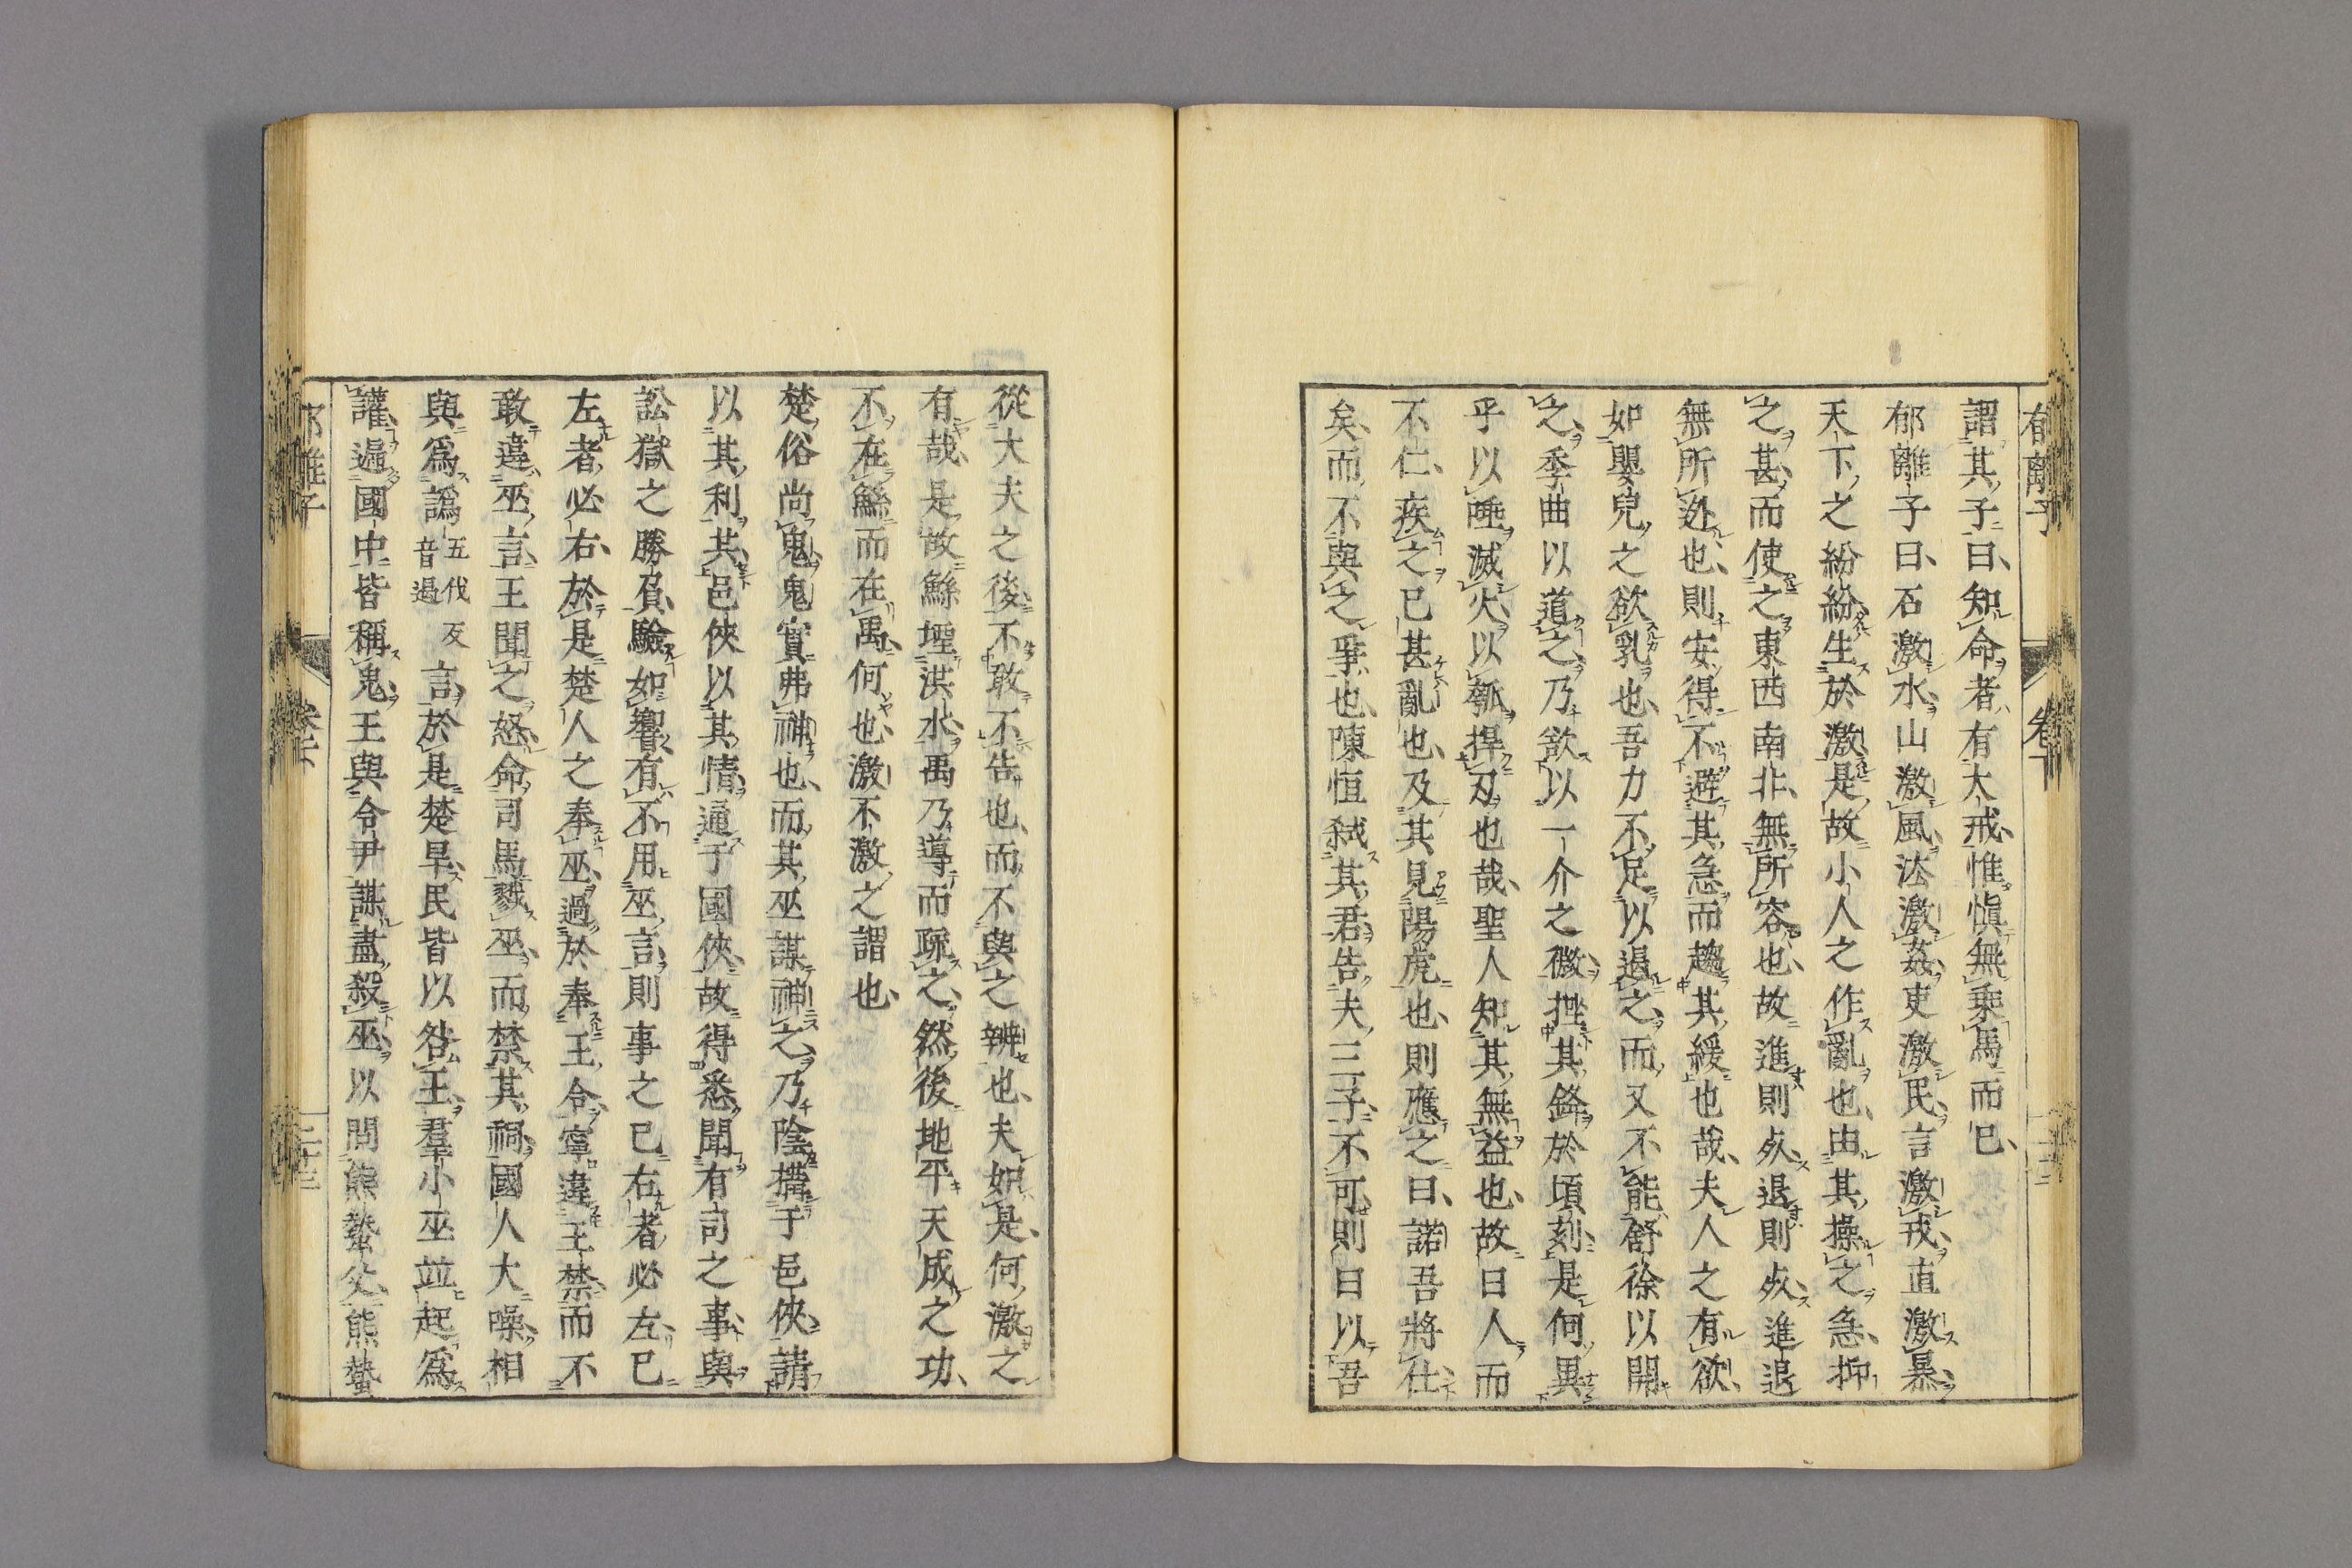 謂其子曰、知命者、有大戒、惟愼無乘馬而已、
郁離子曰、石激水、山激風、法激姦、吏激民、言激戎、直激暴、
天下之紛紛生於激、是故小人之作亂也、由其操之急、抑
之甚、而使之東西南北、無所容也、故進則死、退則死、進退
無所迯也、則安得不避其急而趨其緩也哉、夫人之有欲、
如嬰兒之欲乳也、吾力不足以遏之、而又不能舒徐以開
之、委曲以道之、乃欲以一介之微、挫其鋒於頃刻、是何異
乎以唾滅火、以瓠捍刄也哉、聖人知其無益也、故曰人而
不仁、疾之已甚、亂也、及其見陽虎也、則應之曰、諾吾將仕
矣、而不與之爭也、陳恒弑其君、告夫三子、不可、則曰以吾
從大夫之後、不敢不告也、而不與之辨也、夫如是、何激之
有哉、是故鯀堙洪水、禹乃導而疏之、然後地平天成之功、
不在鯀而在禹、何也、激不激之謂也、
楚俗尚鬼、鬼實弗神也、而其巫謀神之、乃陰搆于邑俠、請
以其利、其邑俠以其情通于國俠、故得悉聞有司之事、與
訟獄之勝負、驗如響、有不用巫言、則事之已右者、必左、已
左者、必右、於是楚人之奉巫、過於奉王、令寧違王禁、而不
敢違巫言、王聞之怒、命司馬戮巫、而禁其祠、國人大噪、相
與爲譌五伐反音過言、於是楚旱、民皆以咎王、羣小巫並起爲
讙、遍國中皆稱鬼、王與令尹謀盡殺巫、以問熊蟄父、熊蟄
郁離子 卷下
郁離子 卷下 二十三